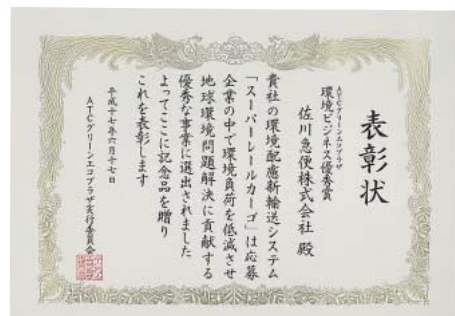 表彰状
ATCグリーンエコプラザ
環境ビジネス優秀賞
佐川急便株式会社 殿
貴社の環境配慮新輸送システム
「スーパーレールカーゴ」は応募
企業の中で環境負荷を低減させ
地球環境問題解決に貢献する
優秀な事業に選出されました
よってここに記念品を贈り
これを表彰します
平成十七年六月十七日
ATCグリーンエコプラザ実行委員会